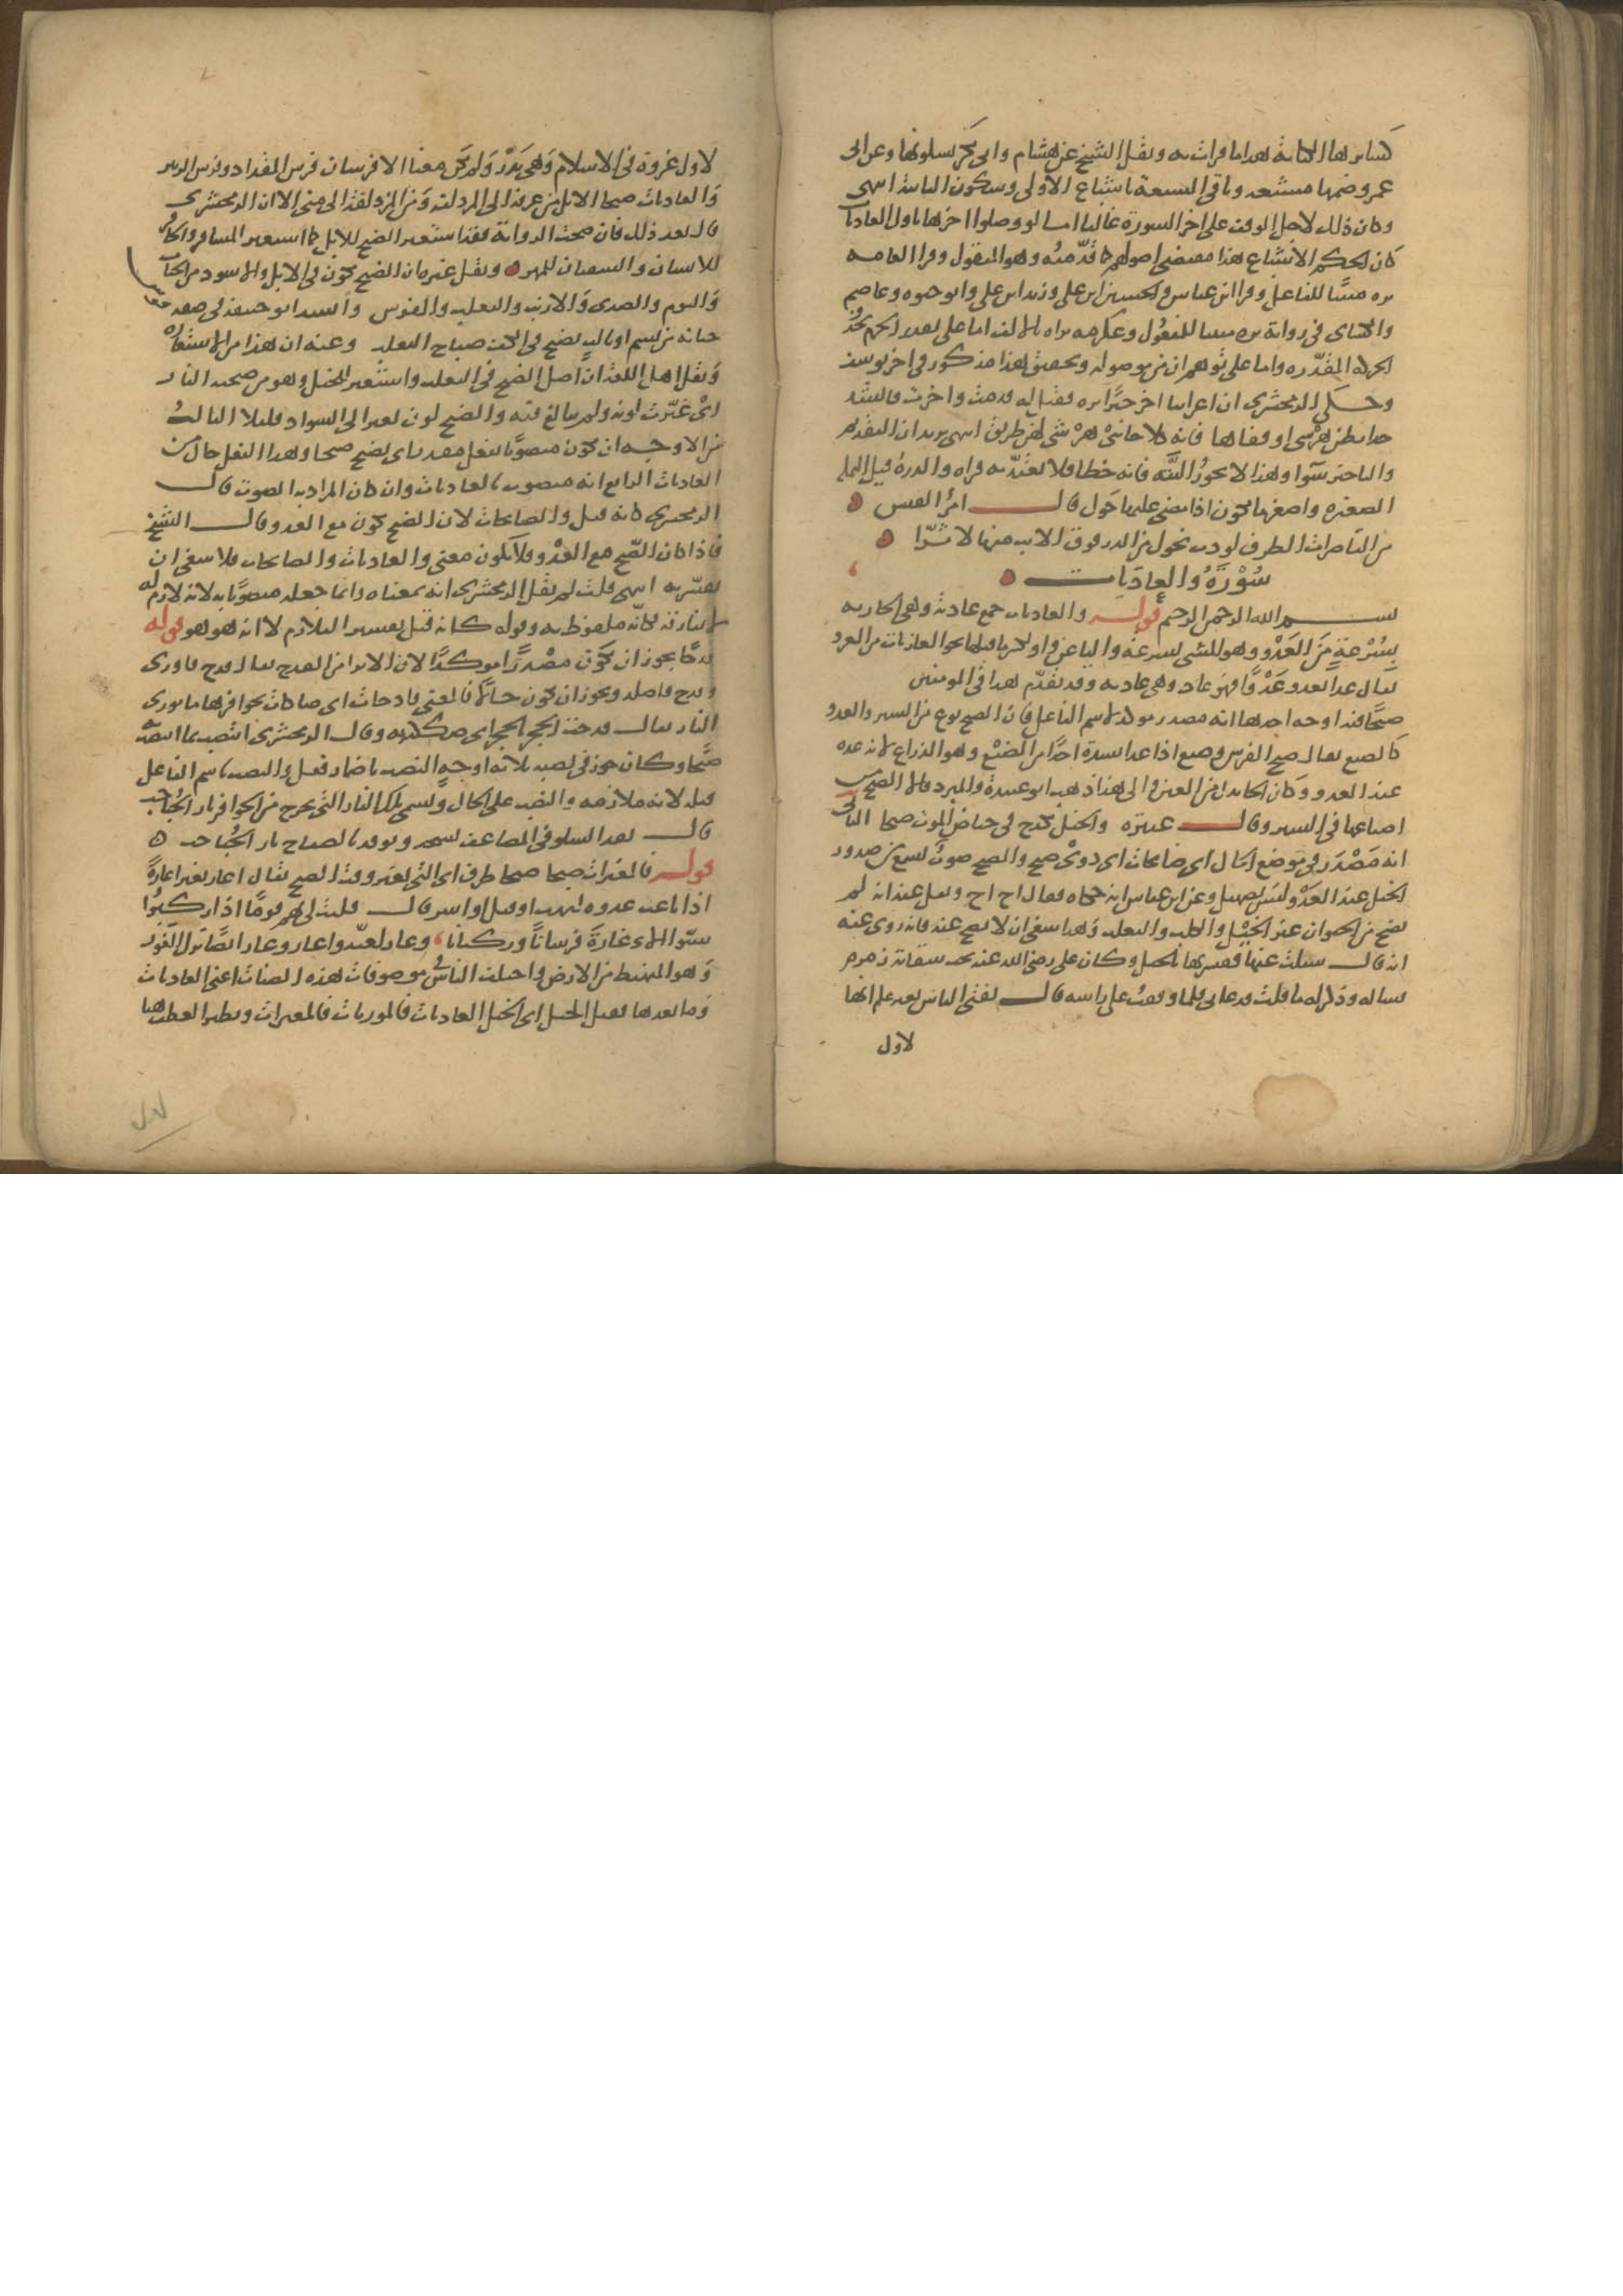 كسائر هاء الكناية هذا ما قرات به ونقل الشيخ عن هشام وابى بكر سكونها وعن ابى
عمرو ضمهما مشبعة وباقى السبعة باشباع الاولى وسكون الثانية انتهى
وكان ذلك لاجل الوقف على اخر السورة غالبا اما لو وصلوا اخرها باول العاديات
كان الحكم الاشباع هذا مقتضى اصولهم كما قدمته وهو المنقول وقرا العامة
يره مبنيا للفاعل وقرا ابن عباس والحسين ابن على وزيد ابن على وابو حيوه وعاصم
والكسائى فى رواية يره مبنيا للمفعول وعكرمه يراه بالالف اما على تقدير الجزم بحذف
الحركة المقدره واما على توهم ان من موصوله وتحقيق هذا مذكور فى اخر يوسف
وحكى الزمخشرى ان اعرابيا اخر خيرا يره فقيل له قدمت واخرت فانشد
خذا بطن هرشى او قفاها فانه كلا جانبى هرشى لهن طريق انتهى يريد ان التقديم
والتاخير سوا وهذا لا يجوز البتة فانه خطا فلا يعتد به قراه والذرة قيل النملة
الصغيره واصغر ما تكون اذا مضى عليها حول قال امرؤ القيس
من القاصرات الطرف لو دب محول من الذر فوق الاتب منها لاثرا
سُوْرَةُ والعادَيات
بسم الله الرحمن الرحيم قوله والعاديات جمع عادية وهى الجارية
بِسُرْعةٍ مِنَ العَدْوِ وهو المشى بسرعة والياء عن واو لكسر ما قبلها نحو الغازيات من الغزو
يقال عدا يعدو عَدْوًا فهو عاد وهى عاديه وقد تقدّم هذا فى المومنين
ضبحا فيه اوجه احدها انه مصدر موكد لاسم الفاعل فان الضبح نوع من السير والعدو
كالضبع يقال ضبح الفرس وضبع اذا عدا بشدة اخذا من الضبْع وهو الذراع لانه يمده
عند العدو وكان الحا بدل من العين والى هذا ذهب ابو عبيدة والمبرد قالا الضبح من
اضباعها فى السير وقال عنترة والخيل تكدح فى حياض الموت ضبحا الثانى
انه مَصْدَر فى موضع الحال اى ضابحات اى ذوى ضبح والضبح صوتٌ يسمع من صدور
الخيل عند العَدْو ليس بصهيل وعن ابن عباس انه حكاه فقال اح اح ونقل عنه انه لم
يضبح من الحيوان غير الخيْل والكلب والثعلب وهذا ينبغى ان لا يصح عنه فانه روى عنه
انه قال سئلت عنها ففسرتها بالخيل وكان على رضى الله عنه تحت سقاية زمزم
فساله وذكر له ما قلت فدعانى فلما وقفتُ على راسه قال تفتى الناس بغير علم انها
لاول
لاول غزوة فى الاسلام وهى بَدْر ولم يكن معنا الا فرسان فرس للمقداد وفرس للزبير
والعاديات ضبحا الابل من عرفة الى المزدلفة ومن المزدلفة الى منى الا ان الزمخشرى
قال بعد ذلك فان صحت الرواية فقد استعير الضبح للابل كما استعير المشافر والحافر
للانسان والشفتان للمهر ونقل غيره ان الضبح يكون فى الابل والاسود من الحيات
والبوم والصدى والارنب والثعلب والقوس وانشد ابو حنيفة فى صفة قوس
حنانة من نشم او تالب تضبح فى الكف ضباح الثعلب وعنه ان هذا من الاستعارة
ونقل اهل اللغة ان اصل الضبح فى الثعلب واستعير للخيل وهو من ضبحته النار
اى غيّرت لونه ولم تبالغ فيه والضبح لون تغير الى السواد قليلا الثالث
من الاوجه ان يكون منصوبا بفعل مقدر اى يضبح ضبحا وهذا الفعل حال من
العاديات الرابع انه منصوب بالعاديات وان كان المراد به الصوت قال
الزمخشرى كانه قيل والضابحات لان الضبح يكون مع العدو قال الشيخ
فاذا كان الضّبح مع العدْو فلا يكون معنى والعاديات والضابحات فلا ينبغى ان
يفسّر به انتهى قلت لم يقل الزمخشرى انه بمعناه وانما جعله منصوبا به لانه لازم له
لا يفارقه فكانه ملفوظ به وقوله كانه قيل تفسير التلازم لا انه هو هو قوله
قدحا يجوز ان يكون مصْدرًا موكدًا لان الايرا من القدح يقال قدح فاورى
وقدح فاصلد ويجوز ان يكون حالا فالمعنى قادحات اى صاكات بحوافرها ما يورى
النار يقال قدحت الحجر بالحجر اى صككته به وقال الزمخشرى انتصب بما انتصب به
ضبحا وكان جوز فى نصبه ثلاثة اوجه النصب باضمار فعل والنصب باسم الفاعل
قبله لانه ملازمه والنصب على الحال وتسمى تلك النار التى تخرج من الحوافر نار الحُباحب
قال تقد السلوقى المضاعف نسجه وتوقد بالصفاح نار الحُباحب
قوله فالمغيرات صبحا صبحا ظرف اى التى تغير وقت الصبح يقال اغار يغير اغارةً
اذا باغت عدوه لنهب او قتل او اسر قال فليت لى بهم قوما اذا ركبُوا
شنوا الاغارةَ فرسانًا وركبانا وغار لغيّة واغار وغار ايضًا نزل الغَوْر
وهو المنهبط من الارض واختلف الناس فى موصوفات هذه الصفات اعنى العاديات
وما بعدها فقيل الخيل اى والخيل العاديات فالموريات فالمغيرات ونظير العطف هنا